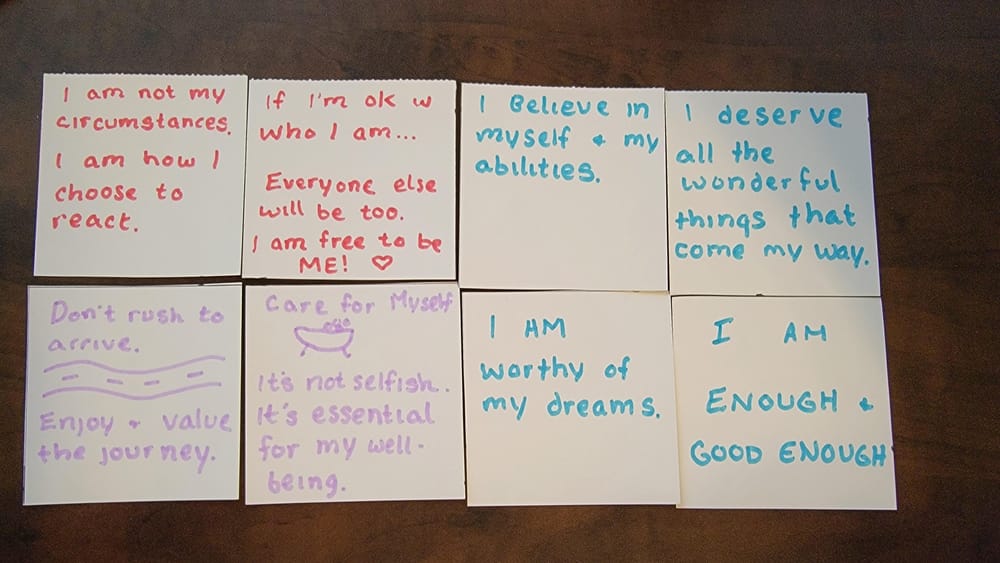 I am not my
circumstances.
I am how I
choose to
react.
If I'm ok w
who I am...
Everyone else
will be too.
I am free to be
ME! ♡
I Believe in
myself + my
abilities.
I deserve
all the
wonderful
things that
come my way.
Don't rush to
arrive.
Enjoy + value
the journey.
Care for Myself
It's not selfish.
It's essential
for my well-
being.
I AM
worthy of
my dreams.
I AM
ENOUGH +
GOOD ENOUGH